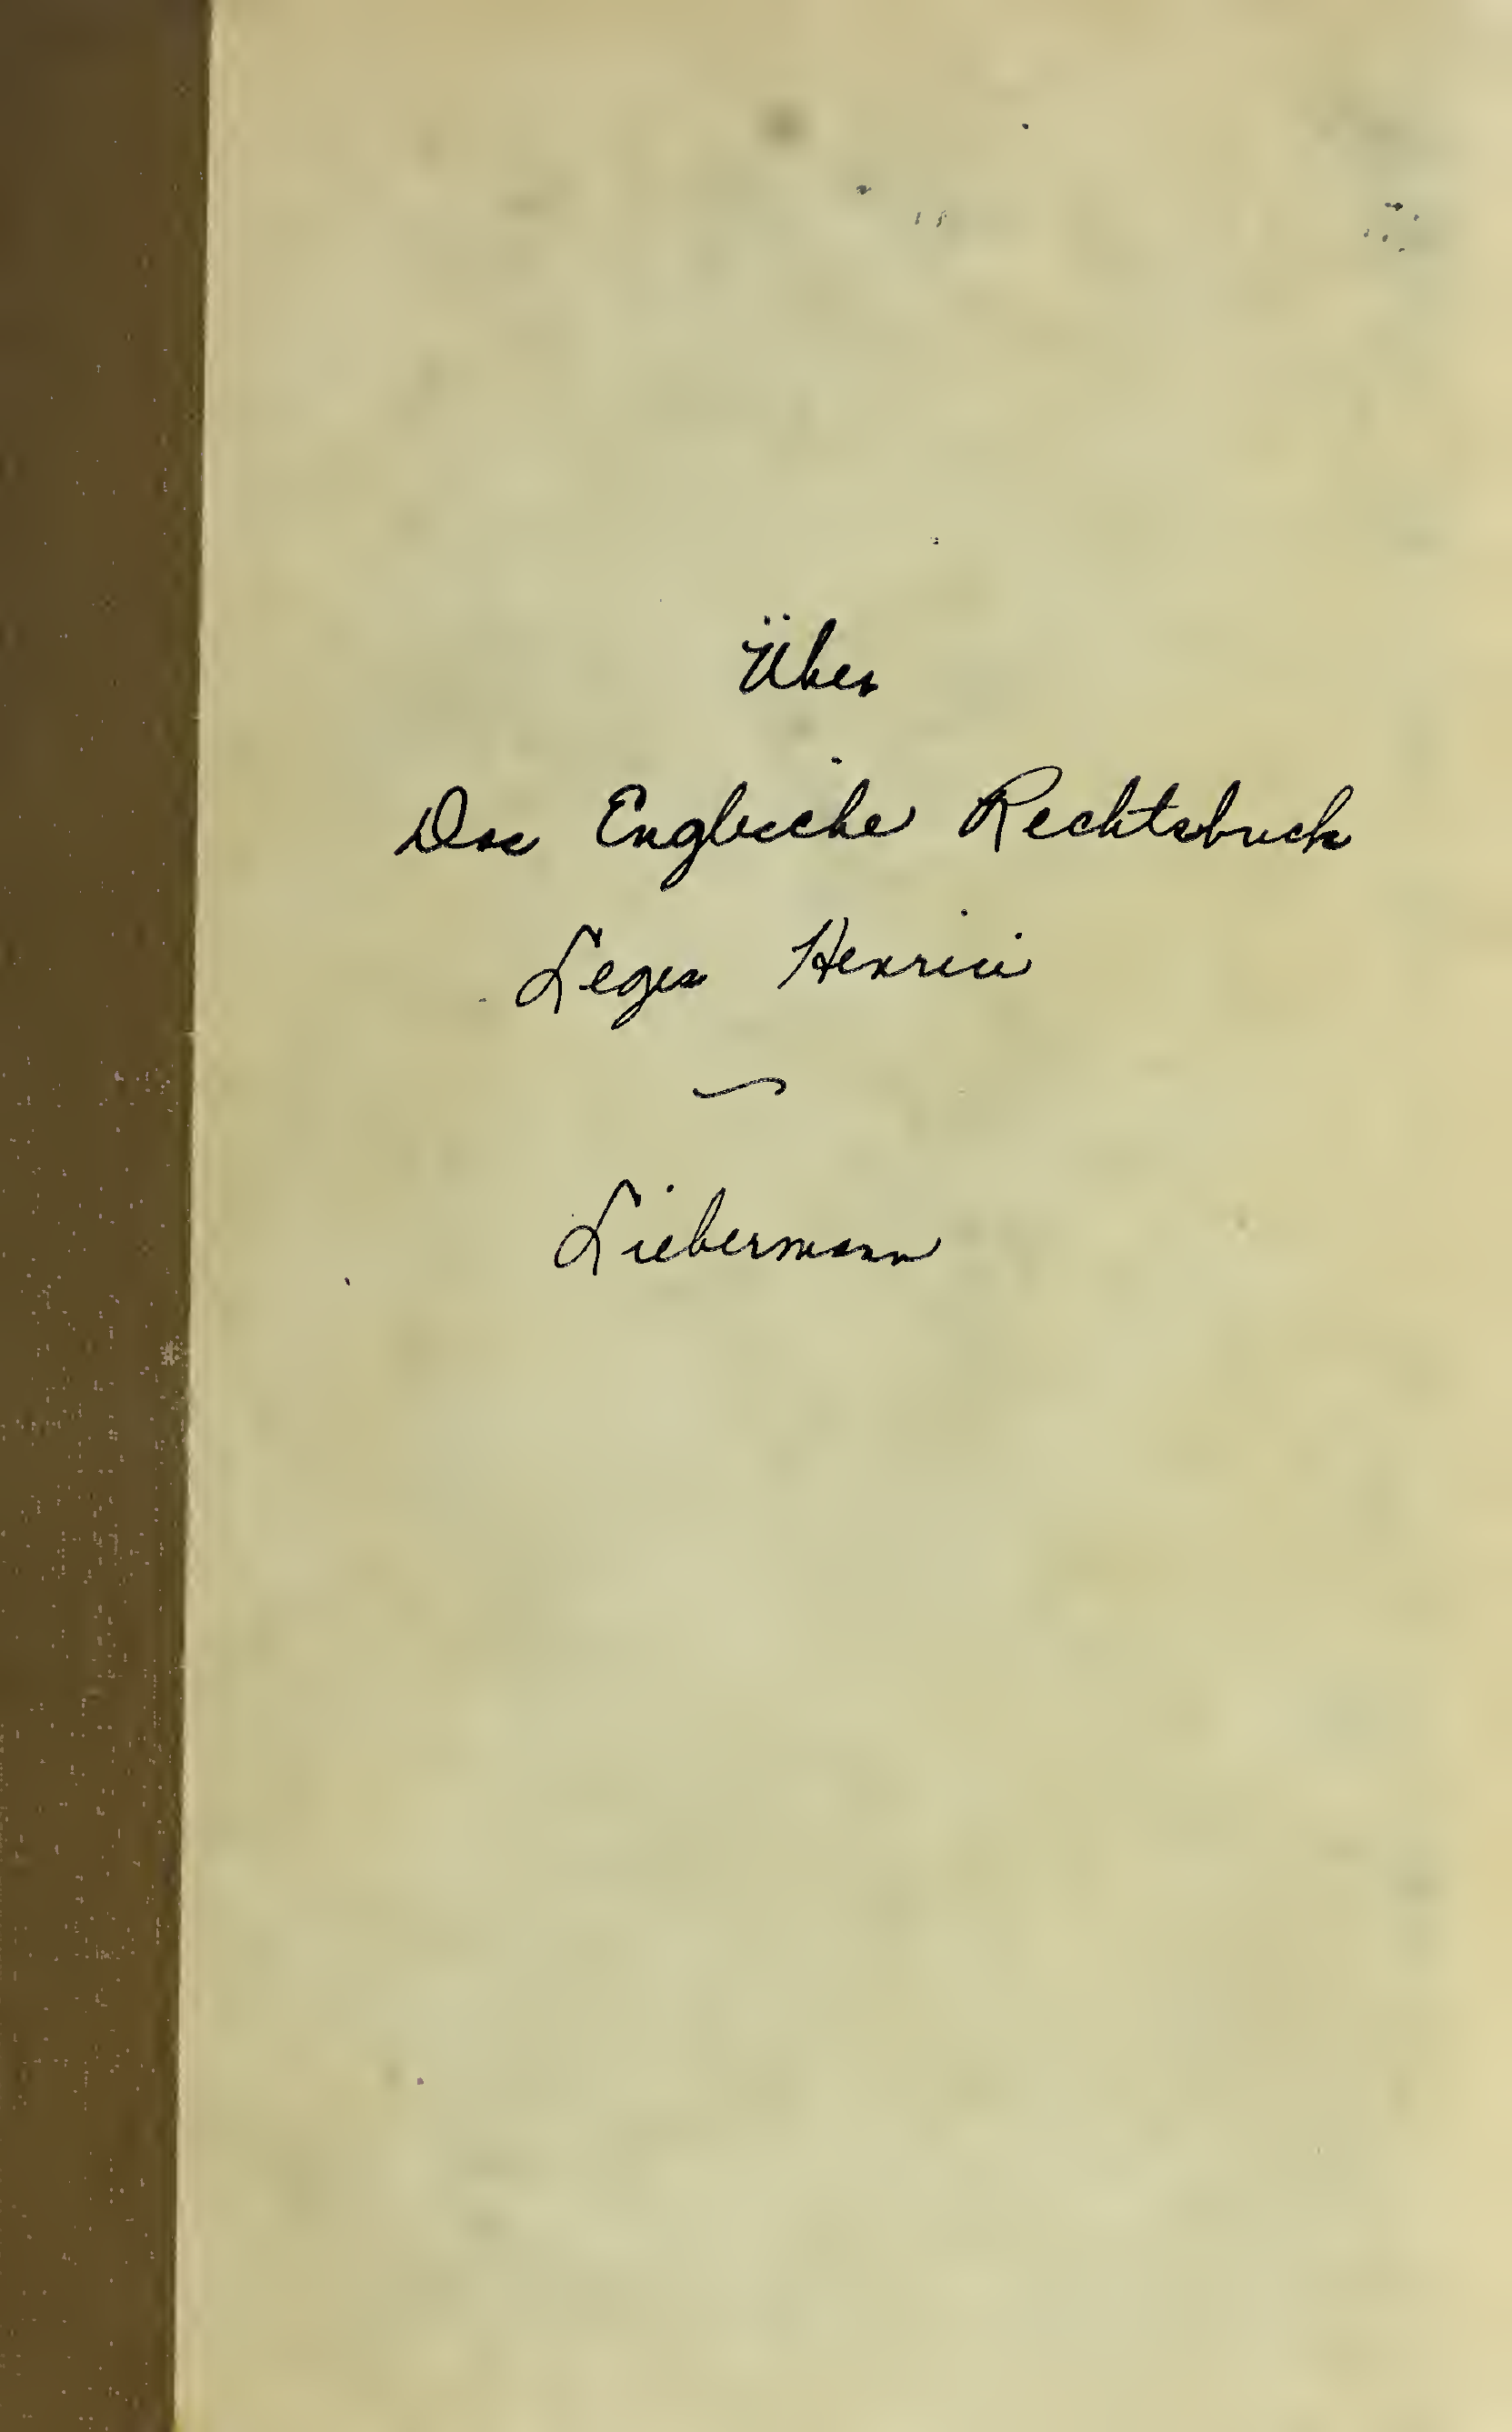 Über
Das Englische Rechtsbuch
Leges Henrici
Liebermann